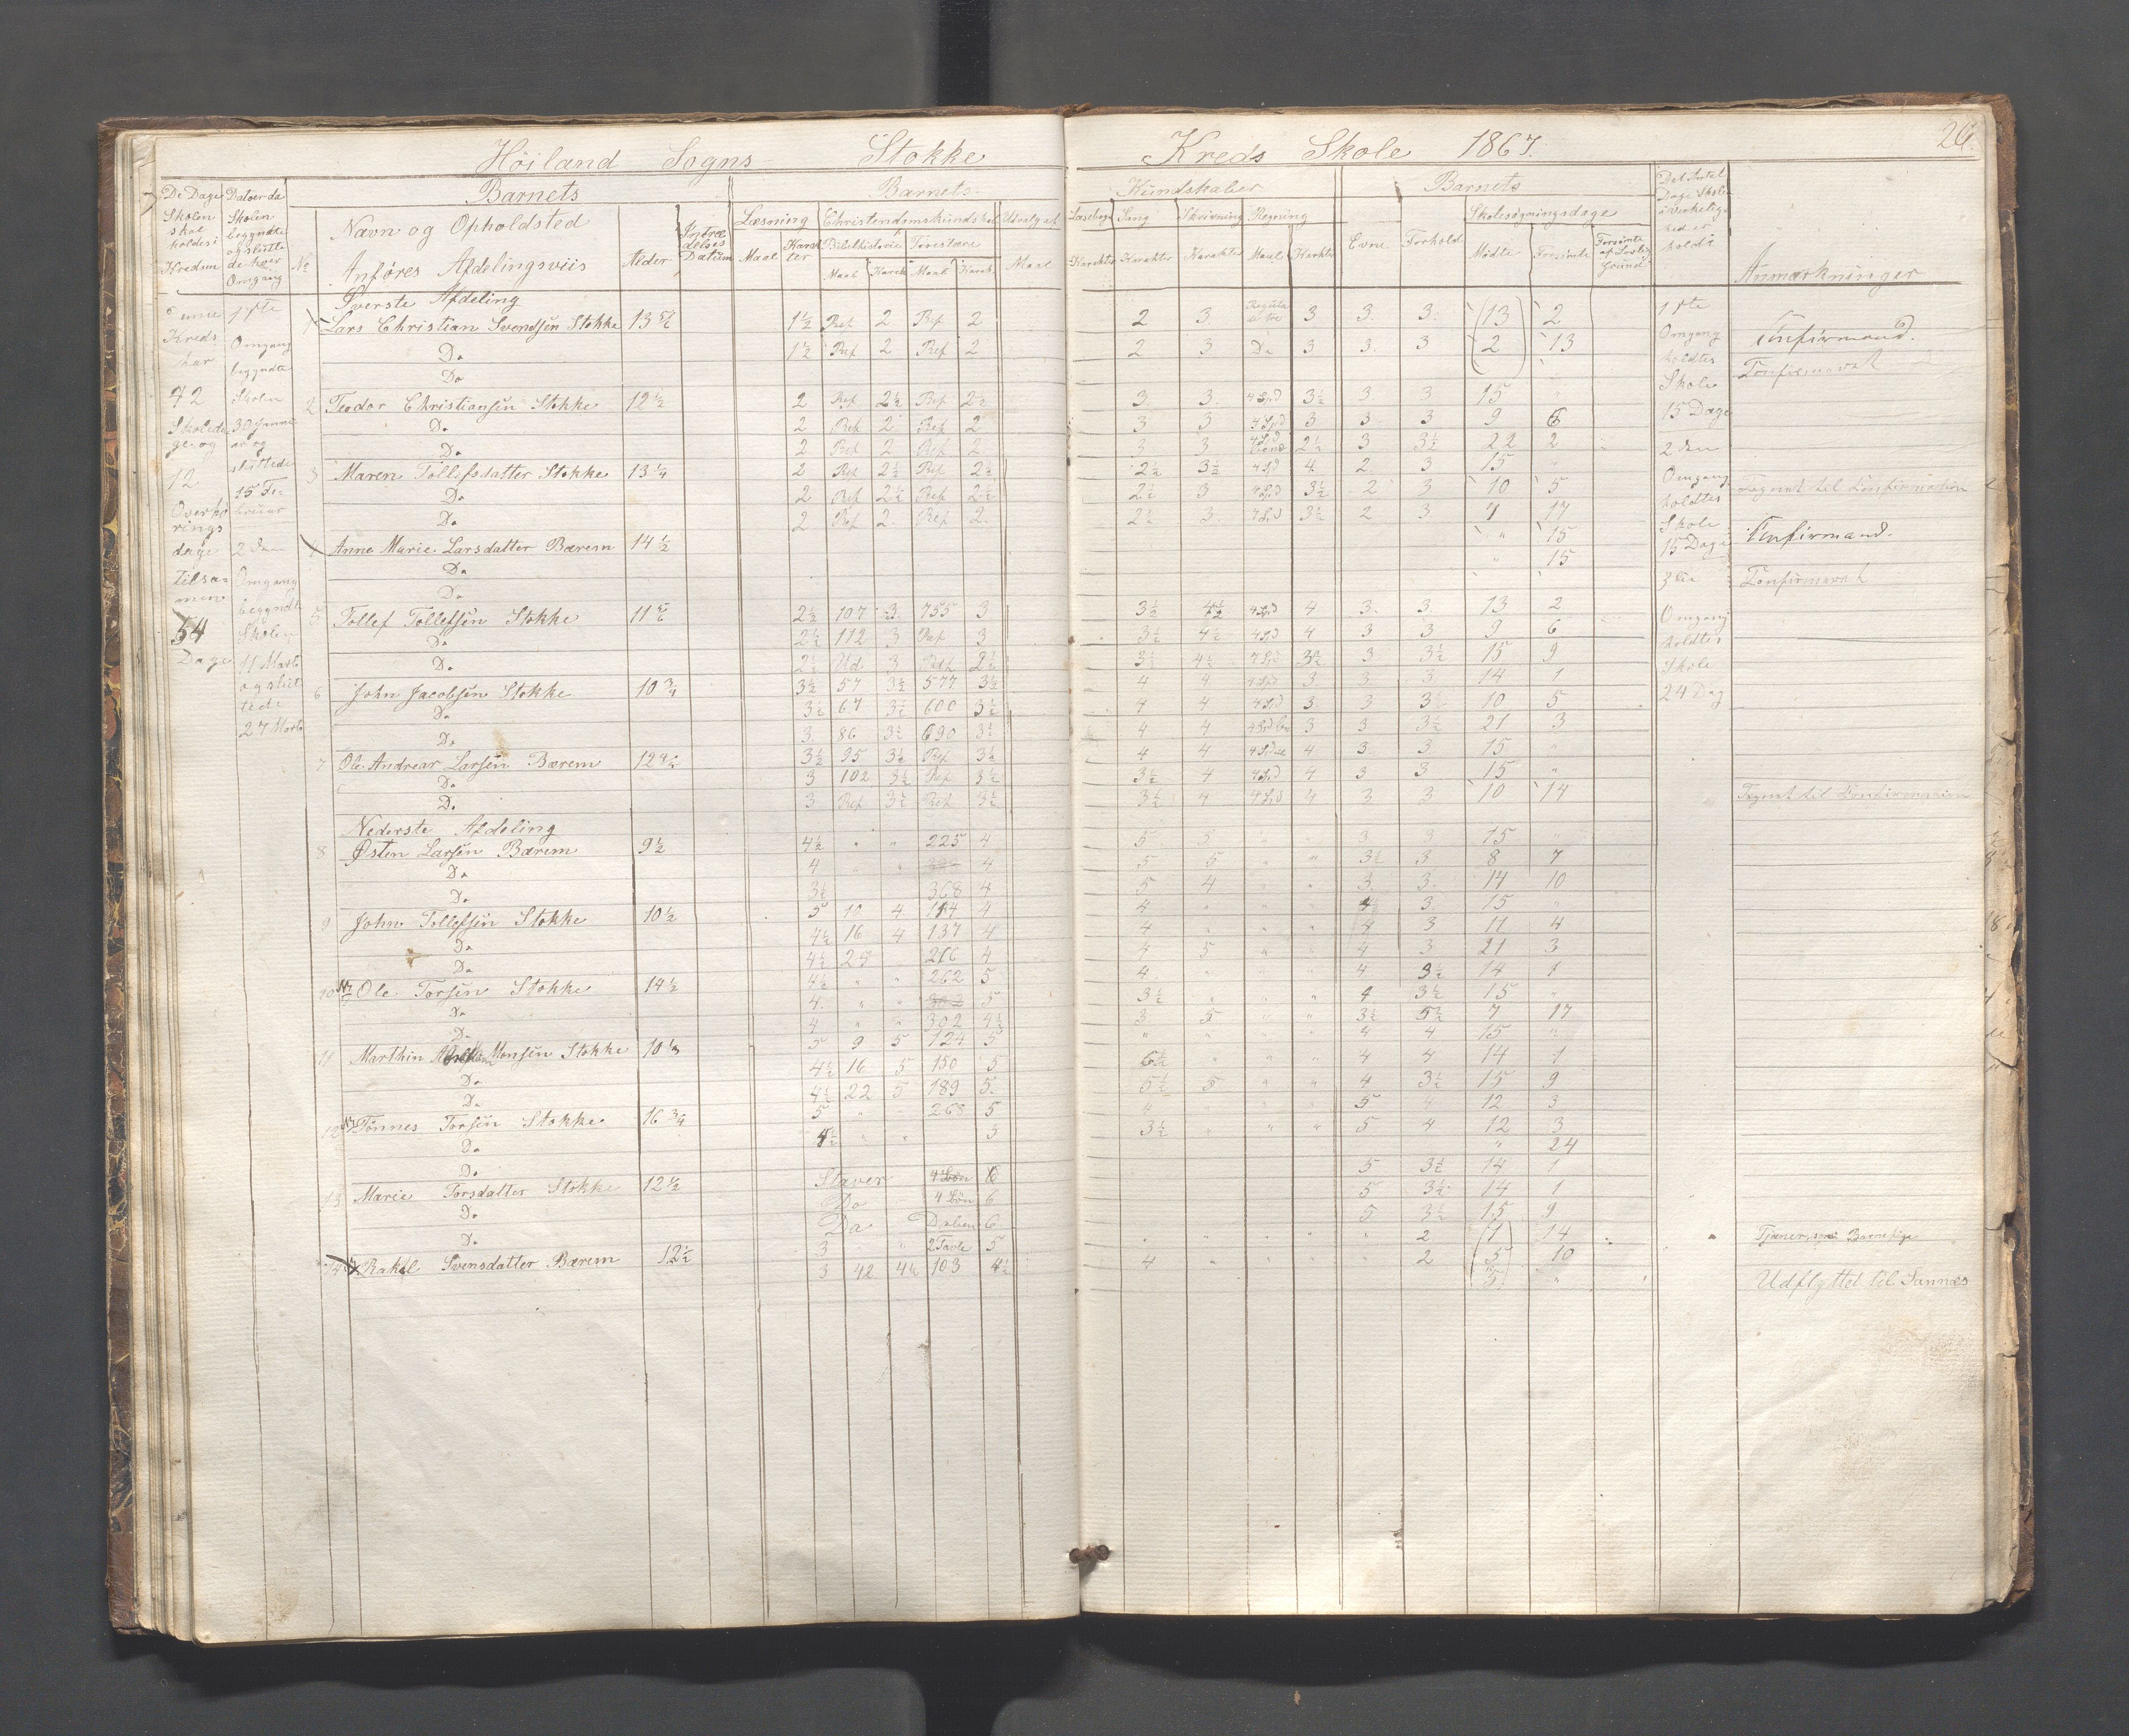 Höiland Sogns Stokke Kreds Skole 1867.
26.
De Dage Skolen skal holdes i Kredsen
Datoer da Skolen begyndte og sluttede hver Omgang
Barnets
No
Navn og Opholdsted
Anföres Afdelingsviis
Alder
Indtrædelses Datum
Barnets Kundskaber
Læsning
Maal
Karakter
Christendomskundskab
Bibelhistorie
Troeslære
Maal Karak Maal Karak
Udvalg af
Maal
Læsebog
Karakter
Sang
Karakter
Skrivning
Karakter
Regning
Maal
Karakter
Barnets
Evne
Forhold
Skolesögningsdage
Mödte
Forsömte
Forsömte af Lovlig Grund
Det Antal Dage Skole i Virkelighed er holdt
Anmærkninger
Denne Kreds har 42 Skoledage og 12 Overhöringsdage tilsammen 54 Dage
1ste Omgang begyndte Skolen 30 Januar og sluttede 15 Februar
2den Omgang begyndte Skolen 11 Marts og sluttede 27 Marts
Överste Afdeling
1 Lars Christian Svendsen Stokke 13 1½ Ref 2 Ref 2 2 3 3 3. 3. 13 2
Do 1½ Ref 2 Ref 2 2 3 Do 3 3. 3 2 13 Confirmand.
Do Confirmeret
2 Teodor Christiansen Stokke 12½ 2 Ref 2½ Ref 2½ 3 3. 4 Spd 3½ 3. 3 15 "
Do 2 Ref 2 Ref 2 3 3 4 Spd 3 3 3 9 6
Do 2 Ref 2 Ref 2 3 3 2½ 3 3½ 22 2
3 Maren Tollefsdatter Stokke 13¼ 2 Ref 2½ Ref 2½ 2½ 3½ 4 Spd 4. 2. 3 15 "
Do 2 Ref 2½ Ref 2½ 2½ 3 4 Spd 3½ 2 3 10 5 Tegnet til Confirmation
Do 2 Ref 2. Ref 2. 2½ 3. 4 Spd 3½ 2 3 7 17
4 Anne Marie Larsdatter Bærem 14½ " 15 Confirmand.
Do " 15
Do Confirmeret
5 Tollef Tollefsen Stokke 11 2½ 107 3. 755 3 3½ 4½ 4 Spd 4 3. 3. 13 2
Do 2½ 112 3 Ref 3 3½ 4½ 4 Spd 4 3 3 9 6
Do 2½ Ud 3 Ref 2½ 3½ 4½ 4 Spd 3½ 3 3½ 15 9
6 John Jacobsen Stokke 10¾ 3½ 57 3½ 577 3½ 4 4 4 Spd 3 3. 3 14 1
Do 3½ 67 3½ 600 3½ 4 4 4 Spd 3. 3 3½ 10 5
Do 3. 86 3½ 690 3½ 4 4 3 3 3½ 21 3
7 Ole Andreas Larsen Bærem 12 3½ 95 3½ Ref 3½ 4 4 4 3. 3 15 "
Do 3 102 3½ Ref 3½ 3½ 4 4 Spd 4 3 3 15 "
Do 3 Ref 3½ Ref 3½ 3½ 4 4 Spd 4 3 3 10 14 Tegnet til Confirmation
Nederste Afdeling
8 Østen Larsen Bærem 9½ 4½ " " 225 4 5 5 " " 3 3 15 "
Do 4 4 5 5 " " 3½ 3 8 7
Do 3½ 368 4 5 4 " " 3. 3. 14 10
9 John Tollefsen Stokke 10½ 5 10 4. 114 4 4 " " " 3. 15 "
Do 4½ 16 4 137 4 4 " " " 4 3 11 4
Do 4½ 216 4 4 5 " " 4 3 21 3
10 Ole Torsen Stokke 14½ 4½ " " 262 5 4 " " " 4 3½ 14 1
Do 4. " " 5 3½ " " " 4 3½ 15 "
Do 4 " " 302 4½ 3 5 " " 3½ 7 17
11 Marthin Monsen Stokke 5 9 5 124 5 " " " " 4 4 15 "
Do 4½ 16 5 150 5 6½ " " " 4 4 14 1
Do 4½ 22 5 189 5. 5½ 5 " " 4 3½ 15 9
12 Tönnes Torsen Stokke 16¾ 5 " 268 5 4 5 4 12 3
Do " " 3½ " " " 5 4 12 3
Do " 24
13 Marie Torsdatter Stokke 12½ Staver 4 Bön 6 5 3½ 14 1
Do Do 4 Bön 6 5 3½ 14 1
Do Do Daben 6 5 3½ 15 9
14 Rakel Svensdatter Bærem 12½ 3 " 2 Tavle 5 " " " " " 2 1 14 Tjener som Barnepige
3 42 4½ 103 4½ 4 " " " 2 5 10
5. " Udflyttet til Sannæs
1ste Omgang holdtes Skole 15 Dage
2den Omgang holdtes Skole 15 Dage
3die Omgang holdtes Skole 24 Dag